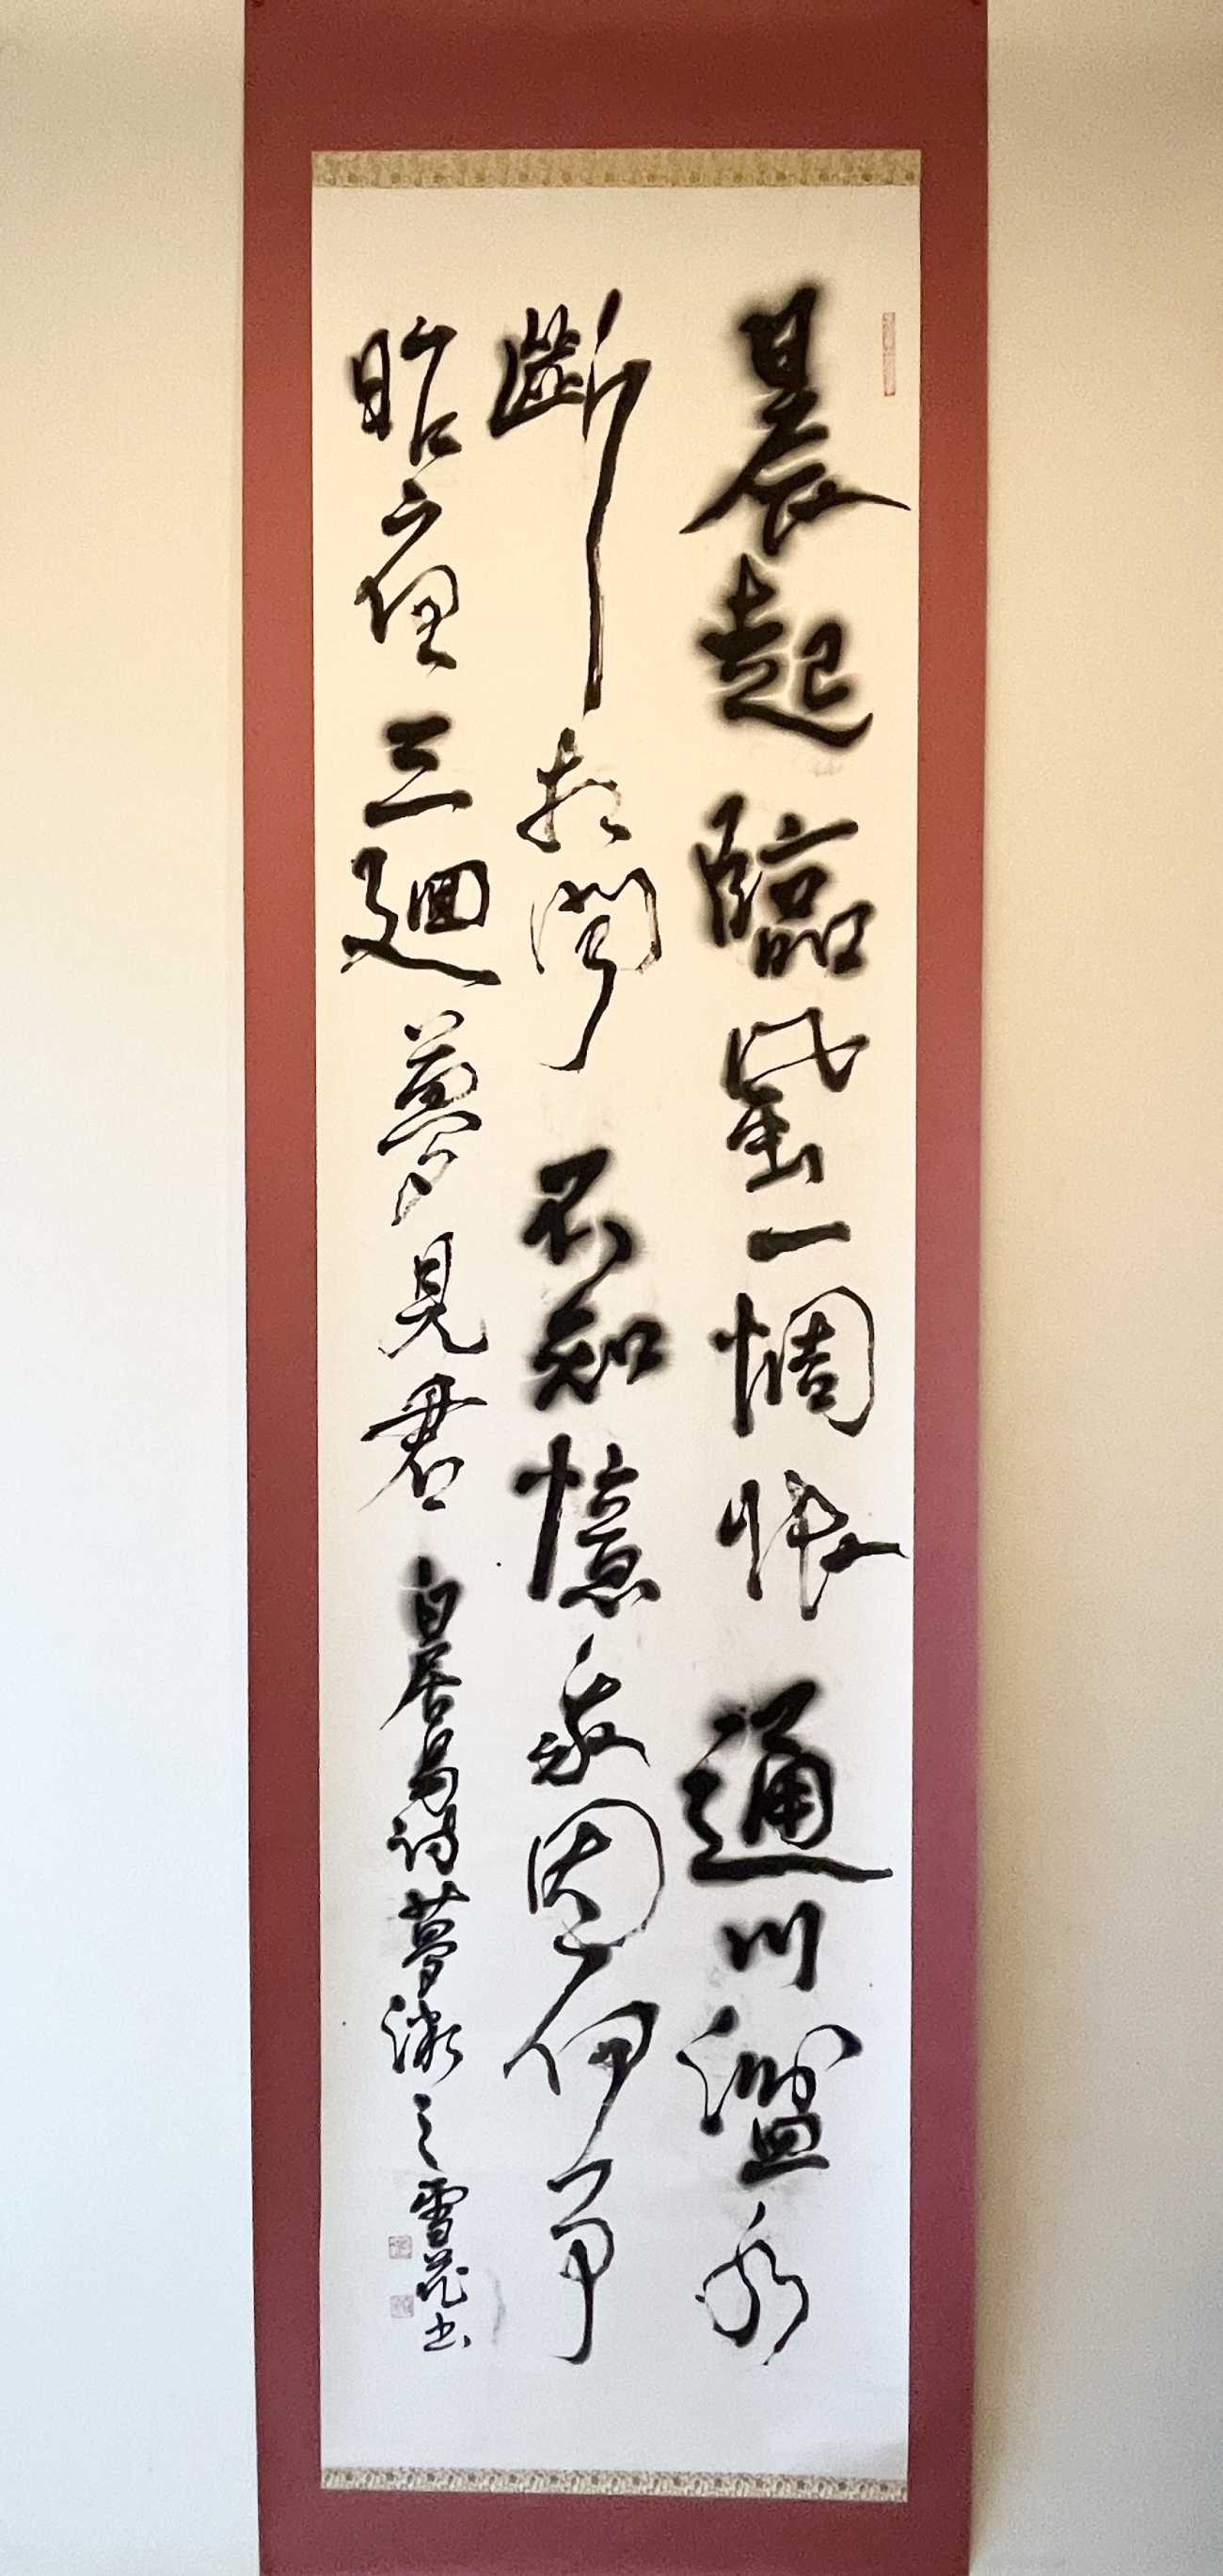 晨起臨一惆悵通川湓水
斷相聞不知憶我因何事
昨夜三廻夢見君 白居易詩夢微之 雪書